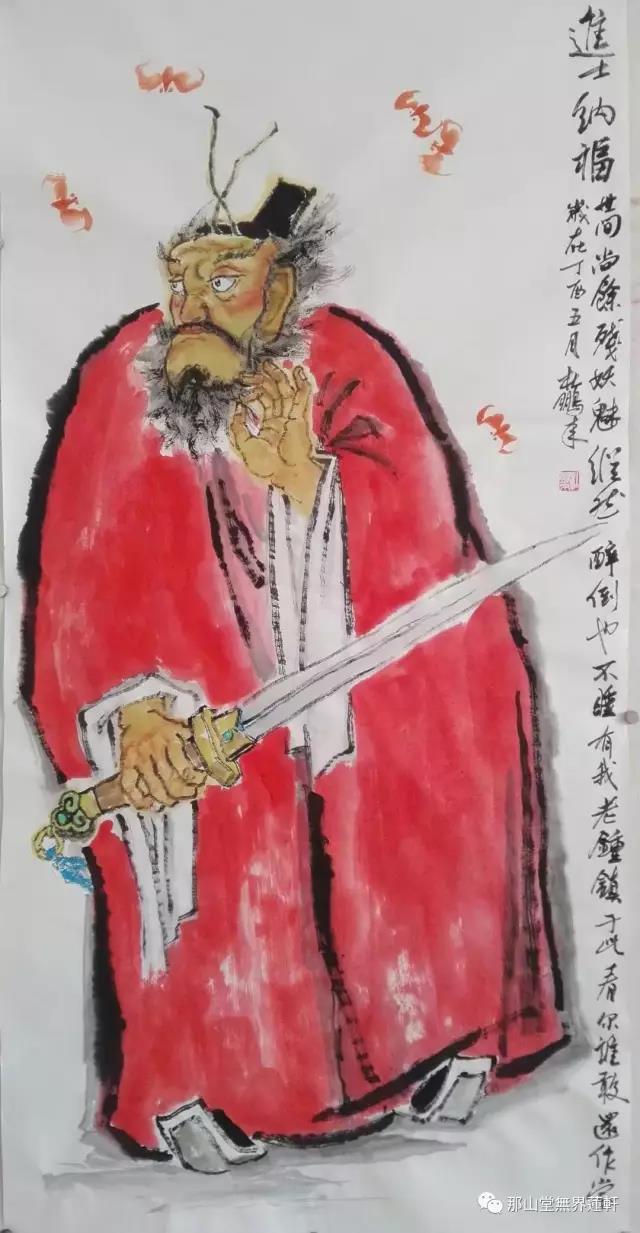 進士納福
世間尚餘殘妖魅縱然醉倒也不睡有我老鍾鎮于此看你誰敢還作祟
歲在丁酉五月
那山堂無界蓮軒